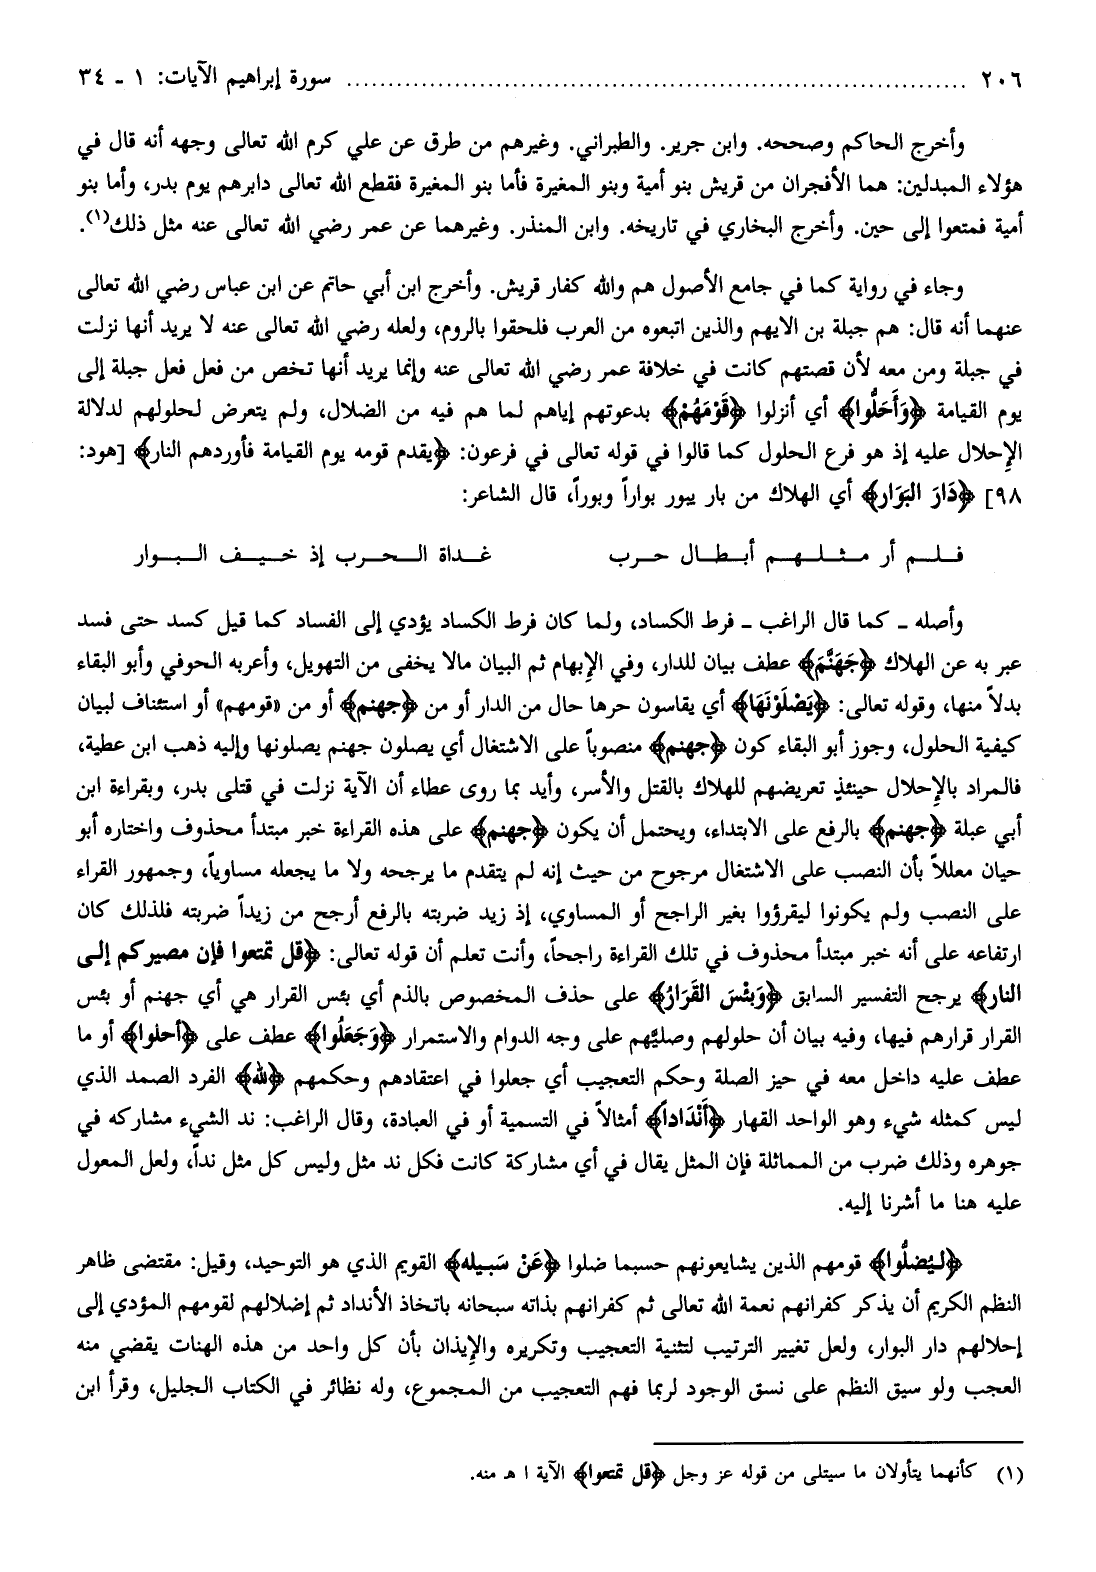 ٢٠٦ ........................................................................ سورة إبراهيم الآيات: ١ ـ ٣٤
وأخرج الحاكم وصححه. وابن جرير. والطبراني. وغيرهم من طرق عن علي كرم الله تعالى وجهه أنه قال في
هؤلاء المبدلين: هما الأفجران من قريش بنو أمية وبنو المغيرة فأما بنو المغيرة فقطع الله تعالى دابرهم يوم بدر، وأما بنو
أمية فمتعوا إلى حين. وأخرج البخاري في تاريخه. وابن المنذر. وغيرهما عن عمر رضي الله تعالى عنه مثل ذلك(١).
وجاء في رواية كما في جامع الأصول هم والله كفار قريش. وأخرج ابن أبي حاتم عن ابن عباس رضي الله تعالى
عنهما أنه قال: هم جبلة بن الايهم والذين اتبعوه من العرب فلحقوا بالروم، ولعله رضي الله تعالى عنه لا يريد أنها نزلت
في جبلة ومن معه لأن قصتهم كانت في خلافة عمر رضي الله تعالى عنه وإنما يريد أنها تخص من فعل فعل جبلة إلى
يوم القيامة ﴿وَأَحَلُّوا﴾ أي أنزلوا ﴿قَوْمَهُمْ﴾ بدعوتهم إياهم لما هم فيه من الضلال، ولم يتعرض لحلولهم لدلالة
الإحلال عليه إذ هو فرع الحلول كما قالوا في قوله تعالى في فرعون: ﴿يقدم قومه يوم القيامة فأوردهم النار﴾ [هود:
٩٨] ﴿دَارَ البَوَار﴾ أي الهلاك من بار يبور بواراً وبوراً، قال الشاعر:
فلم أر مثلهم أبطال حرب غداة الحرب إذ خيف البوار
وأصله ـ كما قال الراغب ـ فرط الكساد، ولما كان فرط الكساد يؤدي إلى الفساد كما قيل كسد حتى فسد
عبر به عن الهلاك ﴿جَهَنَّمَ﴾ عطف بيان للدار، وفي الإبهام ثم البيان مالا يخفى من التهويل، وأعربه الحوفي وأبو البقاء
بدلاً منها، وقوله تعالى: ﴿يَصْلَوْنَهَا﴾ أي يقاسون حرها حال من الدار أو من ﴿جهنم﴾ أو من «قومهم» أو استئناف لبيان
كيفية الحلول، وجوز أبو البقاء كون ﴿جهنم﴾ منصوباً على الاشتغال أي يصلون جهنم يصلونها وإليه ذهب ابن عطية،
فالمراد بالإحلال حينئذٍ تعريضهم للهلاك بالقتل والأسر، وأيد بما روى عطاء أن الآية نزلت في قتلى بدر، وبقراءة ابن
أبي عبلة ﴿جهنم﴾ بالرفع على الابتداء، ويحتمل أن يكون ﴿جهنم﴾ على هذه القراءة خبر مبتدأ محذوف واختاره أبو
حيان معللاً بأن النصب على الاشتغال مرجوح من حيث إنه لم يتقدم ما يرجحه ولا ما يجعله مساوياً، وجمهور القراء
على النصب ولم يكونوا ليقرؤوا بغير الراجح أو المساوي، إذ زيد ضربته بالرفع أرجح من زيداً ضربته فلذلك كان
ارتفاعه على أنه خبر مبتدأ محذوف في تلك القراءة راجحاً، وأنت تعلم أن قوله تعالى: ﴿قل تمتعوا فإن مصيركم إلى
النار﴾ يرجح التفسير السابق ﴿وَبِئْسَ القَرَارُ﴾ على حذف المخصوص بالذم أي بئس القرار هي أي جهنم أو بئس
القرار قرارهم فيها، وفيه بيان أن حلولهم وصليَّهم على وجه الدوام والاستمرار ﴿وَجَعَلُوا﴾ عطف على ﴿أحلوا﴾ أو ما
عطف عليه داخل معه في حيز الصلة وحكم التعجيب أي جعلوا في اعتقادهم وحكمهم ﴿لله﴾ الفرد الصمد الذي
ليس كمثله شيء وهو الواحد القهار ﴿أَنْدَاداً﴾ أمثالاً في التسمية أو في العبادة، وقال الراغب: ند الشيء مشاركه في
جوهره وذلك ضرب من المماثلة فإن المثل يقال في أي مشاركة كانت فكل ند مثل وليس كل مثل نداً، ولعل المعول
عليه هنا ما أشرنا إليه.
﴿لِيُضلُّوا﴾ قومهم الذين يشايعونهم حسبما ضلوا ﴿عَنْ سَبيله﴾ القويم الذي هو التوحيد، وقيل: مقتضى ظاهر
النظم الكريم أن يذكر كفرانهم نعمة الله تعالى ثم كفرانهم بذاته سبحانه باتخاذ الأنداد ثم إضلالهم لقومهم المؤدي إلى
إحلالهم دار البوار، ولعل تغيير الترتيب لتثنية التعجيب وتكريره والإيذان بأن كل واحد من هذه الهنات يقضي منه
العجب ولو سيق النظم على نسق الوجود لربما فهم التعجيب من المجموع، وله نظائر في الكتاب الجليل، وقرأ ابن
(١) كأنهما يتأولان ما سيتلى من قوله عز وجل ﴿قل تمتعوا﴾ الآية ا هـ منه.